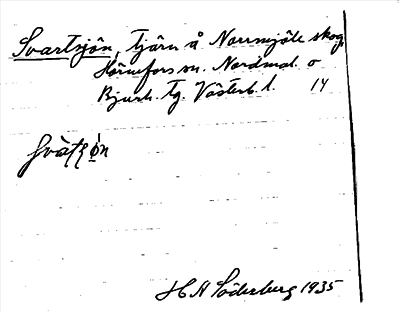 Svartsjön, tjärn å Norrmjöle skog,
Hörnefors sn. Nordmal. o
Bjurh. tg. Västerb. l. 14
svàtʂø̀n
H A Söderberg 1935